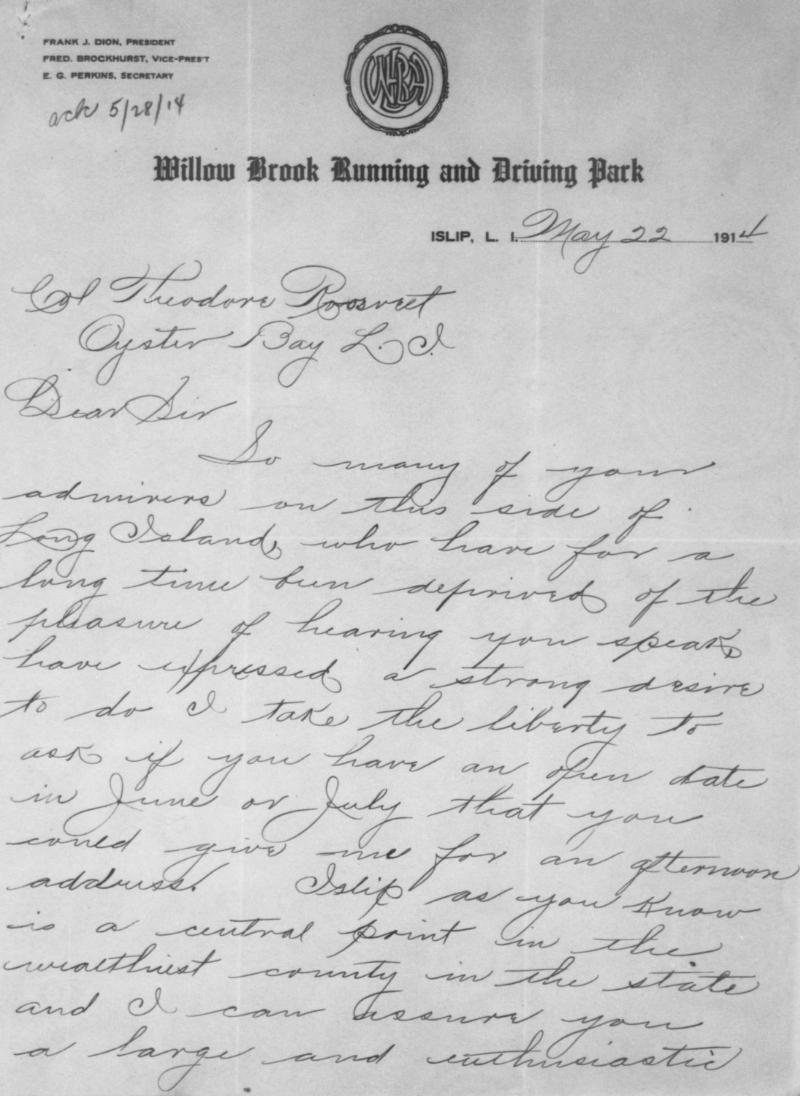 FRANK J. DION, PRESIDENT
FRED. BROCKHURST, VICE-PRES'T
E. G. PERKINS, SECRETARY
ack 5/28/14
Willow Brook Running and Driving Park
ISLIP, L. I. May 22 1914
Col Theodore Roosvelt
Oyster Bay L. I.
Dear Sir
So many of your
admirers on this side of
Long Island, who have for a
long time been deprived of the
pleasure of hearing you speak,
have expressed a strong desire
to do I take the liberty to
ask if you have an open date
in June or July that you
could give me for an afternoon
address. Islip as you know
is a central point in the
wealthiest county in the state
and I can assure you
a large and enthusiastic